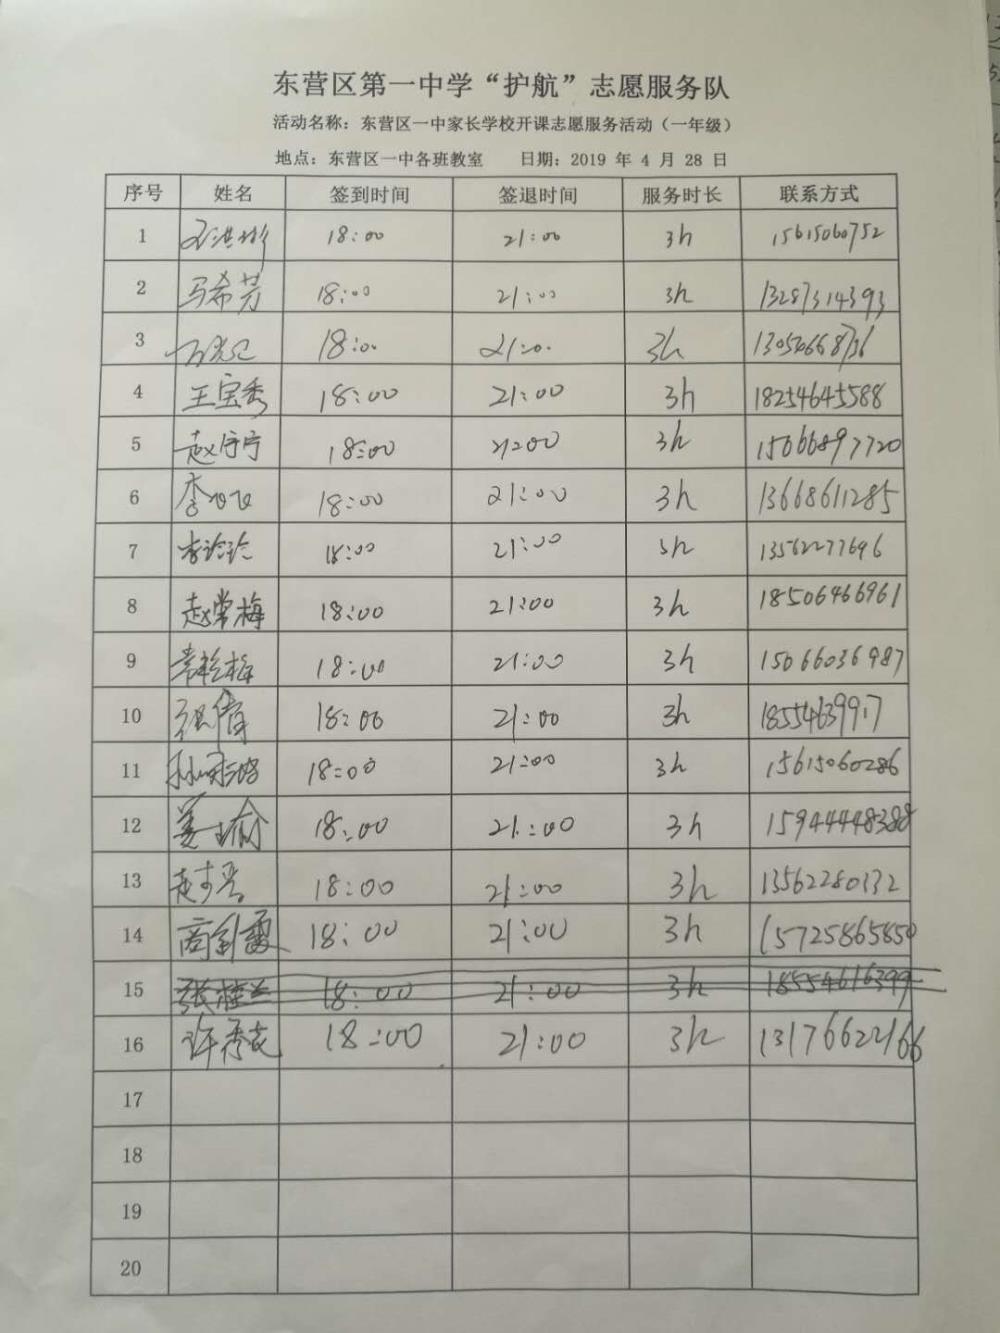 东营区第一中学“护航”志愿服务队
活动名称：东营区一中家长学校开课志愿服务活动（一年级）
地点：东营区一中各班教室 日期：2019 年 4 月 28 日
序号 姓名 签到时间 签退时间 服务时长 联系方式
1 18:00 21:00 3h 15615060752
2 马希芳 18:00 21:00 3h 13287314393
3 18:00 21:00 3h 13054668736
4 王宝秀 18:00 21:00 3h 18254645588
5 赵宁宁 18:00 21:00 3h 15666897720
6 李飞飞 18:00 21:00 3h 13668611285
7 李玲玲 18:00 21:00 3h 13562277696
8 赵常梅 18:00 21:00 3h 18506466961
9 18:00 21:00 3h 15066036987
10 张倩 18:00 21:00 3h 18554639917
11 18:00 21:00 3h 15615060286
12 姜瑜 18:00 21:00 3h 15944448388
13 18:00 21:00 3h 13562280132
14 商剑霞 18:00 21:00 3h 15725865850
15 张桂兰 18:00 21:00 3h 18554616399
16 许秀花 18:00 21:00 3h 13176622166
17
18
19
20